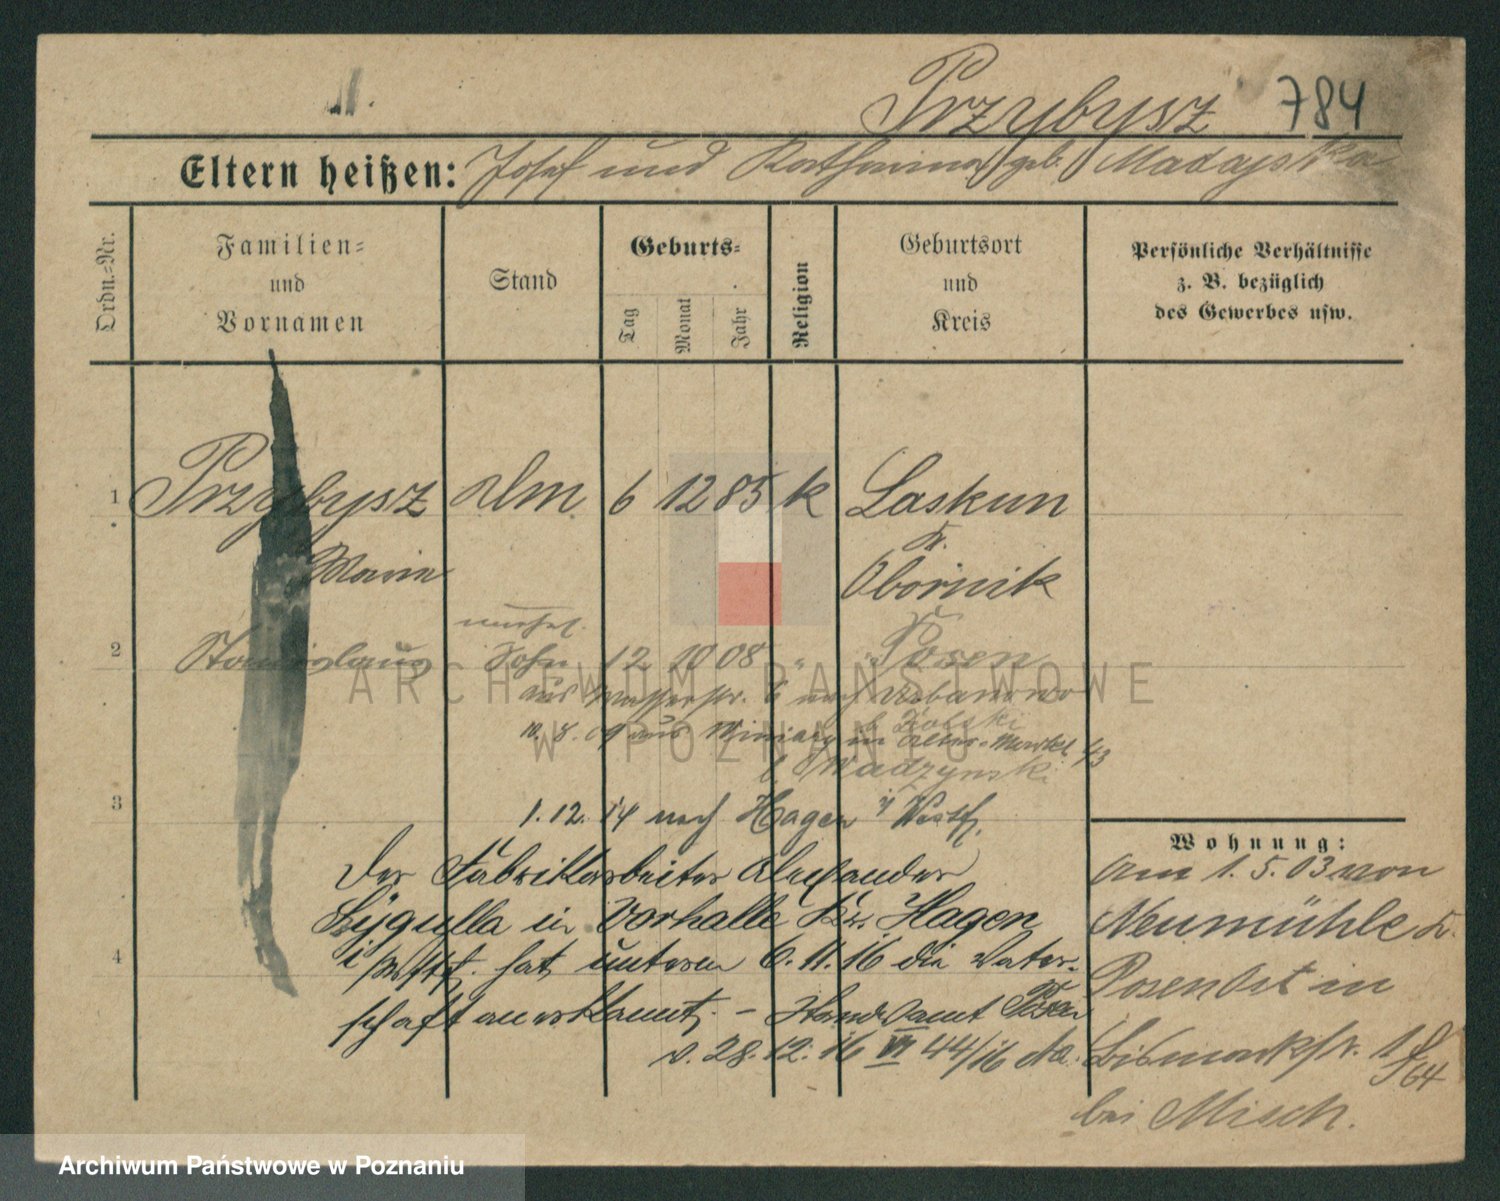 Przybysz 784
Eltern heißen: Josef und Katharina geb. Madajska
Ordn.-Nr.
Familien-
und
Vornamen
Stand
Geburts-
Tag
Monat
Jahr
Religion
Geburtsort
und
Kreis
Persönliche Verhältnisse
z. B. bezüglich
des Gewerbes usw.
1 Przybysz 6 12 85 k Laskun
Kr.
Marie Obornik
unehel.
2 Stanislaus Sohn 12 10 08 " Posen
aus Wasserstr. 6 nach Urbanowo
10. 8. 09 aus Winiary in Alter Markt 43
b. Madzynski
3
1. 12. 14 nach Hagen i/ Westf.
Der Fabrikarbeiter Alexander
Sygulla in Vorhalle Kr. Hagen
i/Westf. hat unterm 6. 11. 16 die Vater-
schaft anerkannt. - Standesamt Posen
v. 28. 12. 16 VI 44/16
4
Wohnung:
Am 1. 5. 03 von
Neumühle Kr.
Posen Ost in
Bismarckstr. 1
bei Misch.
ARCHIWUM PAŃSTWOWE
W POZNANIU
Archiwum Państwowe w Poznaniu